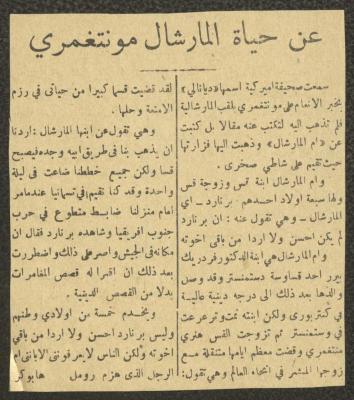 عن حياة المارشال مونتغمري
سمعت صحيفة اميركية اسمها «ديانالي»
بخبر الانعام على مونتغمري بلقب المارشالية
فلم تذهب اليه لتكتب عنه مقالا بل كتبت
عن «ام المارشال» وذهبت اليها فزارتها
حيث تقيم على شاطئ صخري .
وام المارشال ابنة قس وزوجة قس
ولها سبعة اولاد احدهم - برنارد - اي
المارشال - وهي تقول عنه : ان برنارد
لم يكن احسن ولا اردا من باقي اخوته
وام المارشال هي ابنة الدكتور فردريك
بيرر احد قساوسة وستمنستر وقد وصل
والدها بعد ذلك الى درجة دينية عالية
في كنتربوري ولكن ابنته نمت وترعرعت
في وستمنستر ثم تزوجت القس هنري
منتغمري وقضت معظم ايامها متنقلة مع
زوجها المبشر في انحاء العالم وهي تقول:
لقد قضيت قسما كبيرا من حياتي في رزم
الامتعة وحلها .
وهي تقول عن ابنها المارشال : اردنا
ان يذهب بنا في طريق ابيه وجده فيصبح
قسا ولكن جميع خططنا ضاعت في ليلة
واحدة وقد كنا نقيم في تسمانيا عندما مر
امام منزلنا ضابط متطوع في حرب
جنوب افريقيا وشاهده برنارد فقال ان
مكانه في الجيش واصر على ذلك واضطررت
بعد ذلك ان اقرا له قصص المغامرات
بدلا من القصص الدينية .
ويخدم خمسة من اولادي وطنهم
وليس برنارد احسن ولا اردا من باقي
اخوته ولكن الناس لا يعرفونني الا بانني ام
الرجل الذي هزم رومل هابوكر